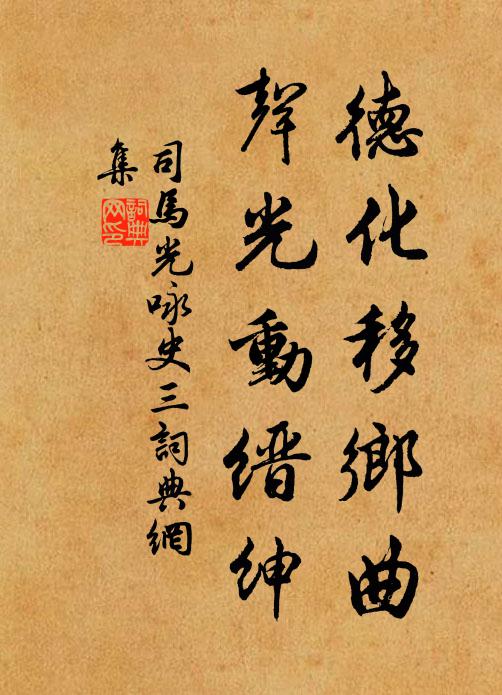 德化移鄉曲
聲光動縉紳
司馬光咏史三詞典網
集
詞典
网印